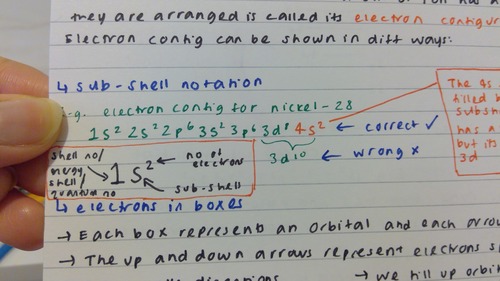 they are arranged is called its electron configur
Electron config can be shown in diff ways:
↳ sub-shell notation
e.g. electron config for nickel - 28
1s² 2s² 2p⁶ 3s² 3p⁶ 3d⁸ 4s² ← correct ✓
3d¹⁰ ← wrong ×
The 4s
filled b
subsh
has a
but its
3d
shell no/
energy
shell/
quantum no
1s²
← no of electrons
sub-shell
↳ electrons in boxes
→ Each box represents an orbital and each arrow
→ The up and down arrows represent electrons s
directions → we fill up orbit